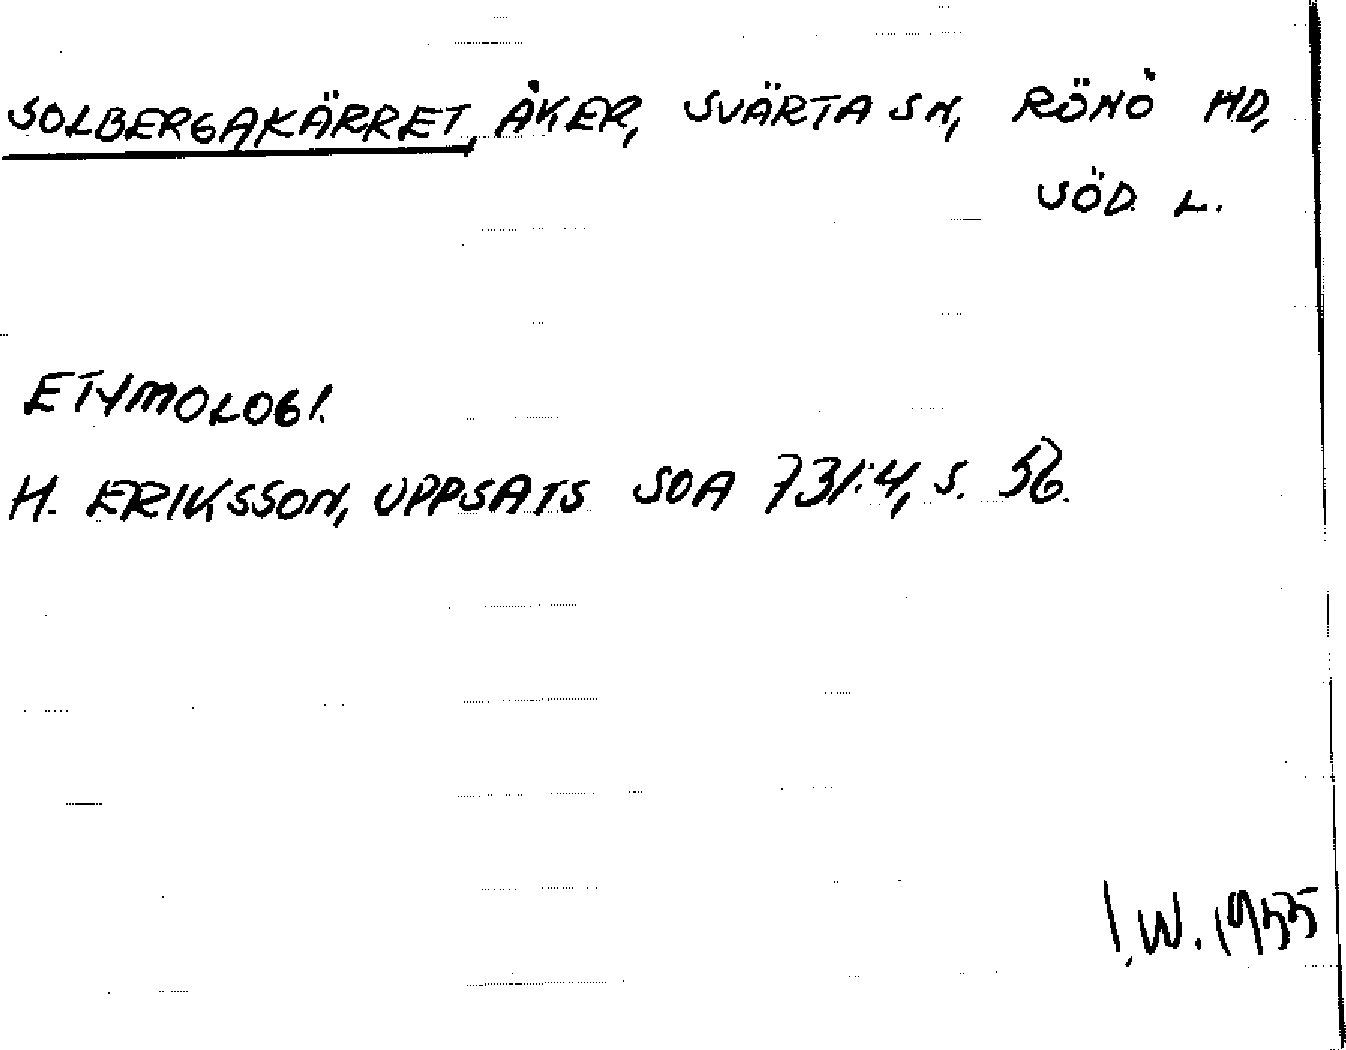 SOLBERGAKÄRRET, ÅKER, SVÄRTA SN, RÖNÖ HD,
SÖD. L.
ETYMOLOGI.
H. ERIKSSON, UPPSATS SOA 731:4, S. 56.
I.W. 1955